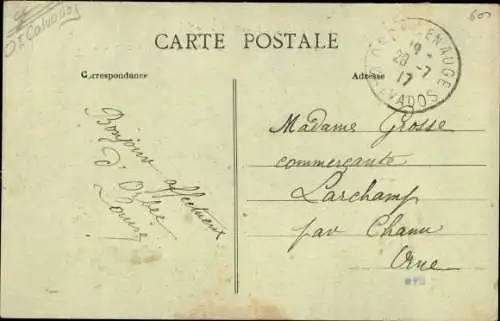 Dt Calvados
600
CARTE POSTALE
Correspondance
Adresse
EN AUGE
19
28-7
17
CALVADOS
Bonjour affectueux
d'Orbec
Louise
Madame Grosse
commerçante
Larchamp
par Chanu
Orne